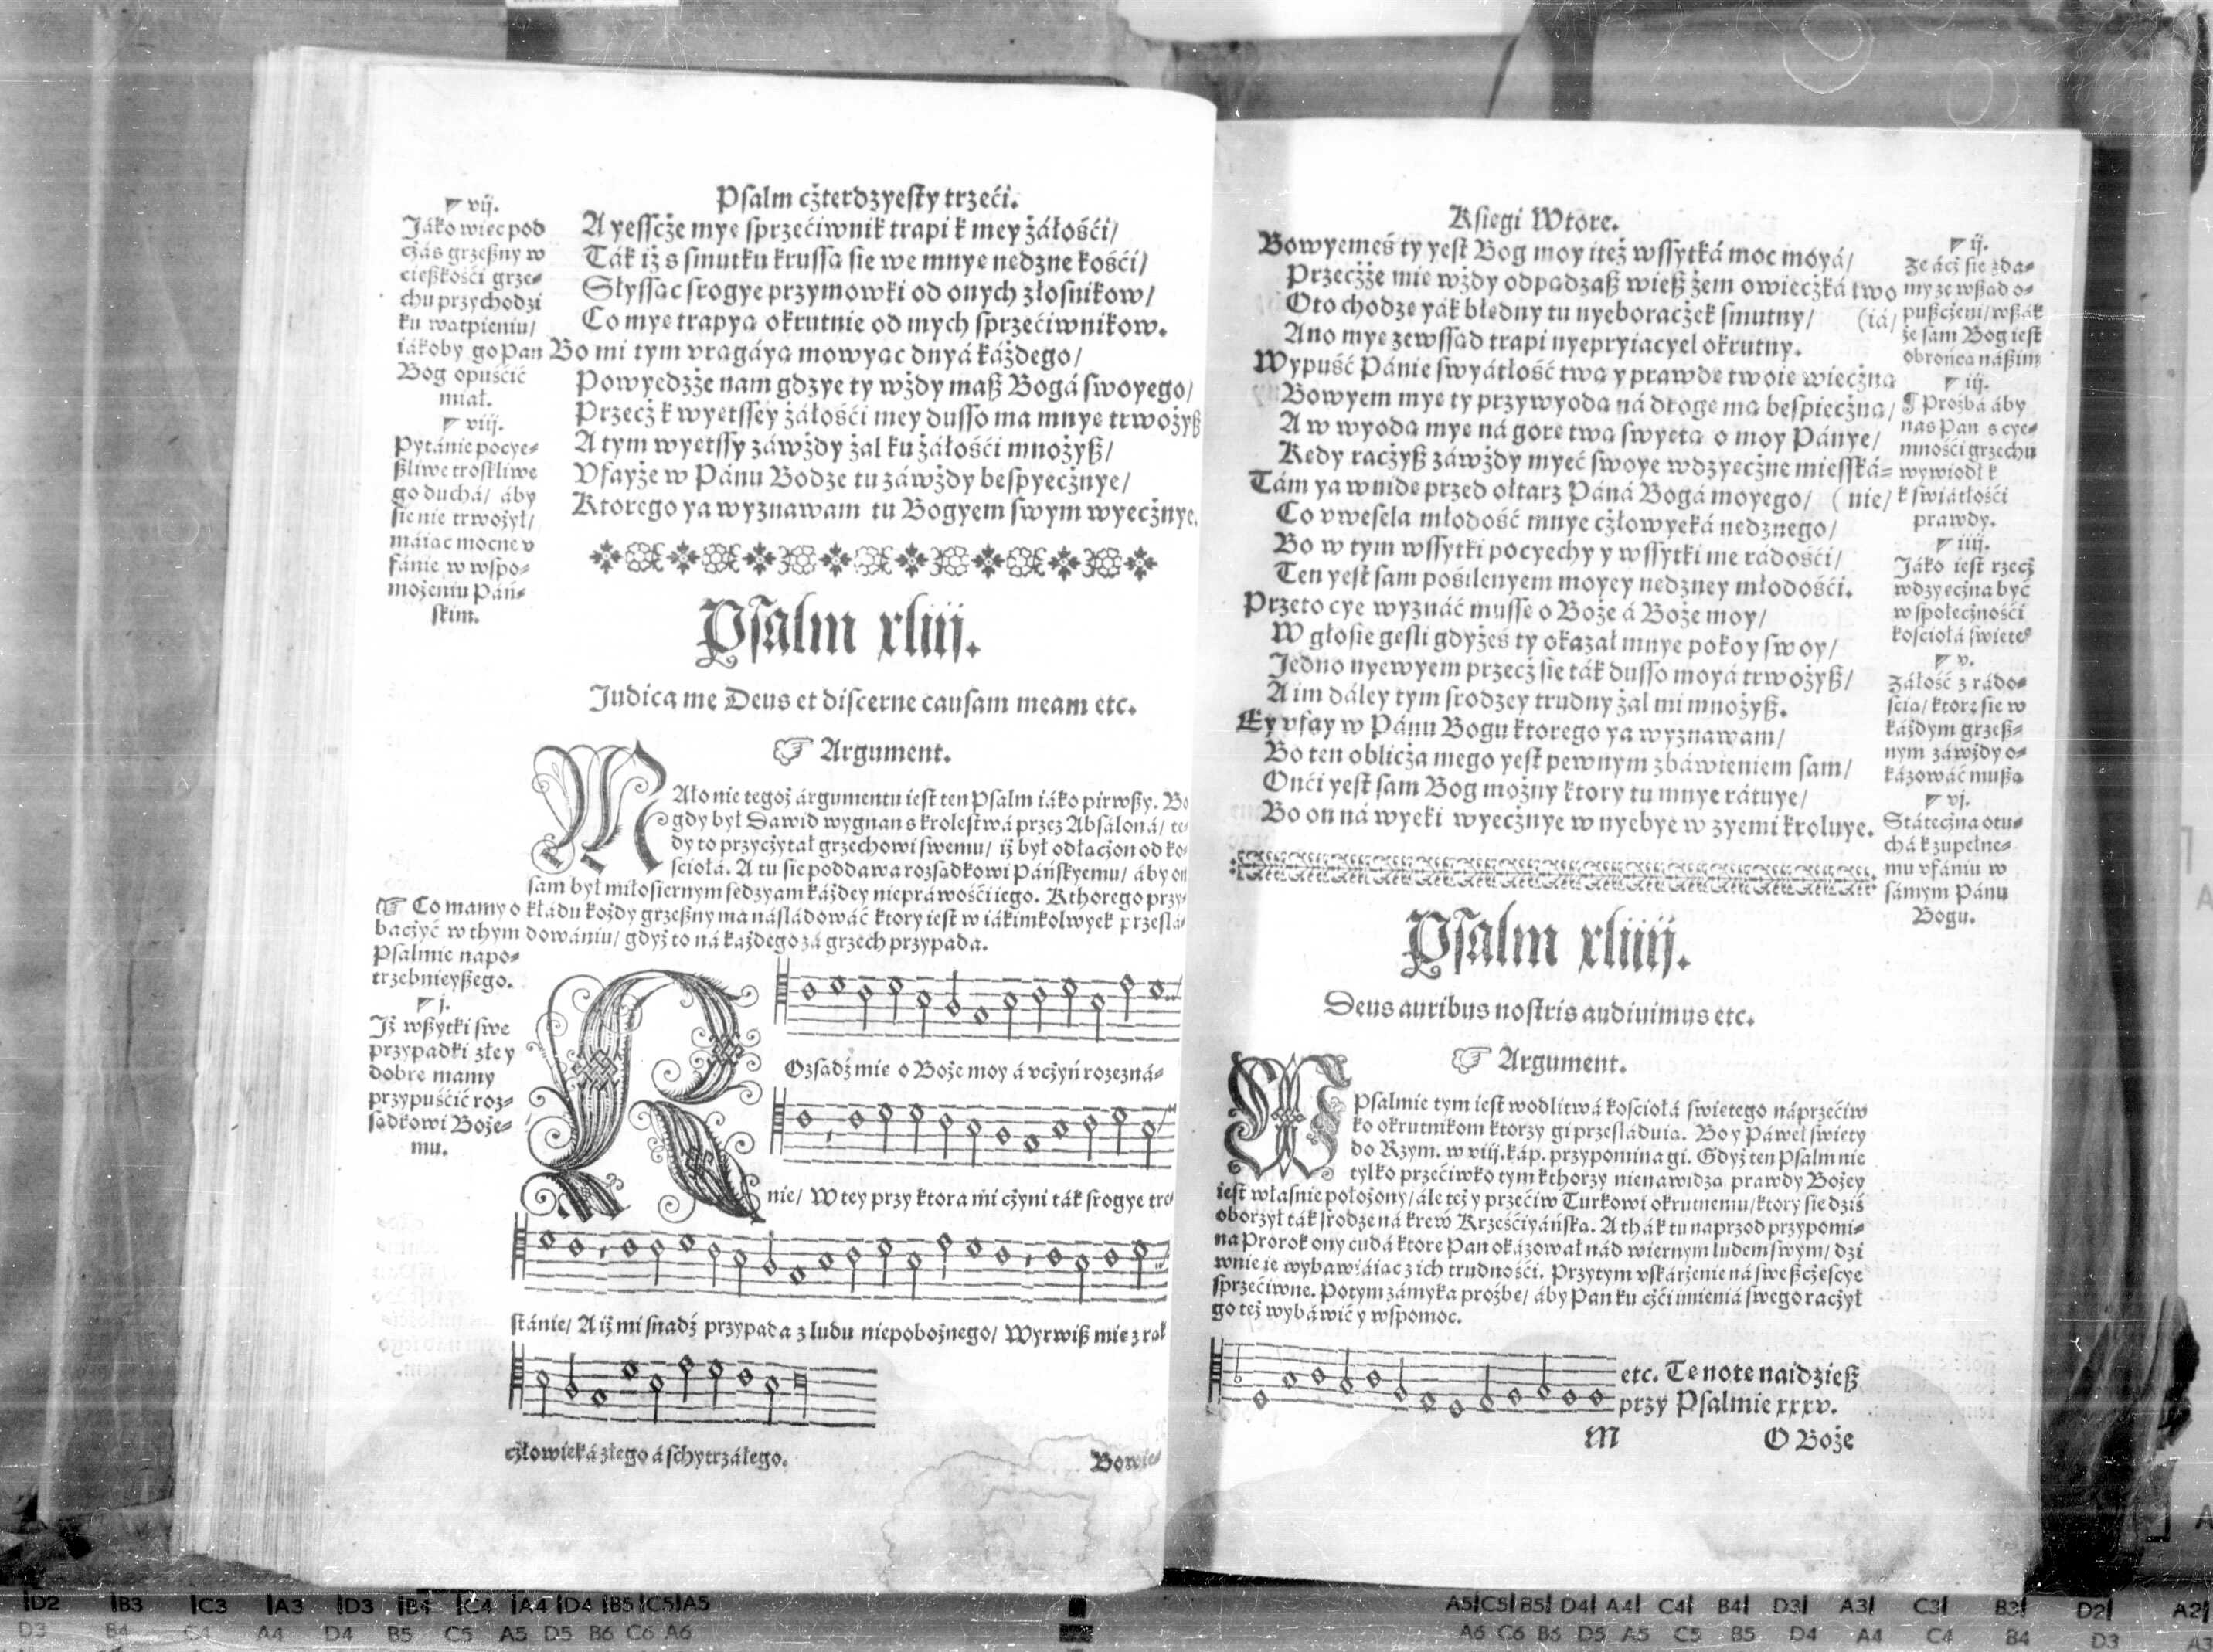 Psalm cżterdzyesty trzeći.
▛ vij.
Jáko wiec pod
cżás grzeßny w
cießkośći grze⸗
chu przychodzi
ku watpieniu/
iákoby go Pan
Bog opuśćić
miał.
▛ viij.
Pytánie pocye⸗
ßliwe troskliwe
go duchá/ áby
sie nie trwożył/
máiac mocne v
fánie w wspo⸗
możeniu Pań⸗
skim.
A yesscże mye sprzećiwnik trapi k mey żáłośći/
Ták iż s smutku krussa sie we mnye nedzne kośći/
Słyssac srogye przymowki od onych złosnikow/
Co mye trapya okrutnie od mych sprzećiwnikow.
Bo mi tym vragáya mowyac dnyá káżdego/
Powyedzże nam gdzye ty wżdy maß Bogá swoyego/
Przecż k wyetssey żáłośći mey dusso ma mnye trwożyß
A tym wyetssy záwżdy żal ku żáłośći mnożyß/
Vfayże w Pánu Bodze tu záwżdy bespyecżnye/
Ktorego ya wyznawam tu Bogyem swym wyecżnye.
Psalm xliij.
Judica me Deus et discerne causam meam etc.
☞ Argument.
MAło nie tegoż árgumentu iest ten Psalm iáko pirwßy. Bo
gdy był Dawid wygnan s krolestwá przez Absáloná/ te⸗
dy to przycżytał grzechowi swemu/ iż był odłacżon od ko⸗
sciołá. A tu sie poddawa rozsadkowi Páńskyemu/ áby on
sam był miłosiernym sedzyam káżdey niepráwośći iego. Kthorego przy⸗
kładu kożdy grzeßny ma násládowáć ktory iest w iákimkolwyek przesla⸗
dowániu/ gdyż to ná każdego zá grzech przypada.
☞ Co mamy o
bacżyć w thym
Psalmie napo⸗
trzebnieyßego.
▛ j.
Iż wßytki swe
przypadki złe y
dobre mamy
przypuśćić roz⸗
sadkowi Boże⸗
mu.
ROzsadź mie o Boże moy á vcżyń rozezná⸗
nie/ W tey przy ktora mi cżyni ták srogye tre⸗
stánie/ A iż mi snadź przypada z ludu niepobożnego/ Wyrwiß mie z rak
cżłowieká złego á schytrzáłego.
Bowie⸗
Ksiegi Wtore.
Bowyemeś ty yest Bog moy iteż wssytká moc moyá/
Przecżże mie wżdy odpadzaß wieß żem owiecżká two
Oto chodze yák błedny tu nyeboracżek smutny/ (iá/
Ano mye zewssad trapi nyepryiacyel okrutny.
Wypuść Pánie swyátłość twa y prawde twoie wiecżna
Bowyem mye ty przywyoda ná droge ma bespiecżna/
A w wyoda mye ná gore twa swyeta o moy Pánye/
Kedy racżyß záwżdy myeć swoye wdzyecżne miesská⸗
Tám ya wnide przed ołtarz Páná Bogá moyego/ (nie/
Co vwesela młodość mnye cżłowyeká nedznego/
Bo w tym wssytki pocyechy y wssytki me rádośći/
Ten yest sam pośilenyem moyey nedzney młodośći.
Przeto cye wyznáć musse o Boże á Boże moy/
W głosie gesli gdyżeś ty okazał mnye pokoy swoy/
Jedno nyewyem przecż sie ták dusso moyá trwożyß/
A im dáley tym srodzey trudny żal mi mnożyß.
Ey vfay w Pánu Bogu ktorego ya wyznawam/
Bo ten oblicża mego yest pewnym zbáwieniem sam/
Onći yest sam Bog możny ktory tu mnye rátuye/
Bo on ná wyeki wyecżnye w nyebye w zyemi kroluye.
▛ ij.
Że ácż sie zda⸗
my ze wßad o⸗
pußcżeni/ wßák
że sam Bog iest
obrońca náßim
▛ iij.
¶ Prożbá áby
nas Pan s cye⸗
mnośći grzechu
wywiodł k
k świátłośći
prawdy.
▛ iiij.
Jáko iest rzecż
wdzyecżna być
w społecżnośći
kościołá swiete⁰
▛ v.
Żáłość z rádo⸗
ścia/ ktore sie w
káżdym grzeß⸗
nym záwżdy o⸗
kázowáć mußa
▛ vj.
Státecżna otu⸗
chá k zupełne⸗
mu vfániu w
sámym Pánu
Bogu.
Psalm xliiij.
Deus auribus nostris audiuimus etc.
☞ Argument.
W Psalmie tym iest modlitwá kosciołá swietego náprzećiw
ko okrutnikom ktorzy gi przesláduia. Bo y Páweł swiety
do Rzym. w viij. káp. przypomina gi. Gdyż ten Psalm nie
tylko przećiwko tym kthorzy nienawidza prawdy Bożey
iest własnie położony/ ále też y przećiw Turkowi okrutnemu/ ktory sie dziś
oborzył ták srodze ná krew Krześćiyáńska. A thák tu naprzod przypomi⸗
na Prorok ony cudá ktore Pan okázował nád wiernym ludem swym/ dzi
wnie ie wybawiáiac z ich trudnośći. Przytym vskárżenie ná sweßcżescye
sprzećiwne. Potym zámyka prożbe/ áby Pan ku cżći imieniá swego racżył
go też wybáwić y wspomoc.
etc. Te note naidzieß
przy Psalmie xxxv.
M
O Boże
D2 B3 C3 A3 D3 B4 C4 A4 D4 B5 C5 A5
D3 B4 C4 A4 D4 B5 C5 A5 D5 B6 C6 A6
A5 C5 B5 D4 A4 C4 B4 D3 A3 C3 B3 D2 A2
A6 C6 B6 D5 A5 C5 B5 D4 A4 C4 B4 D3 A3